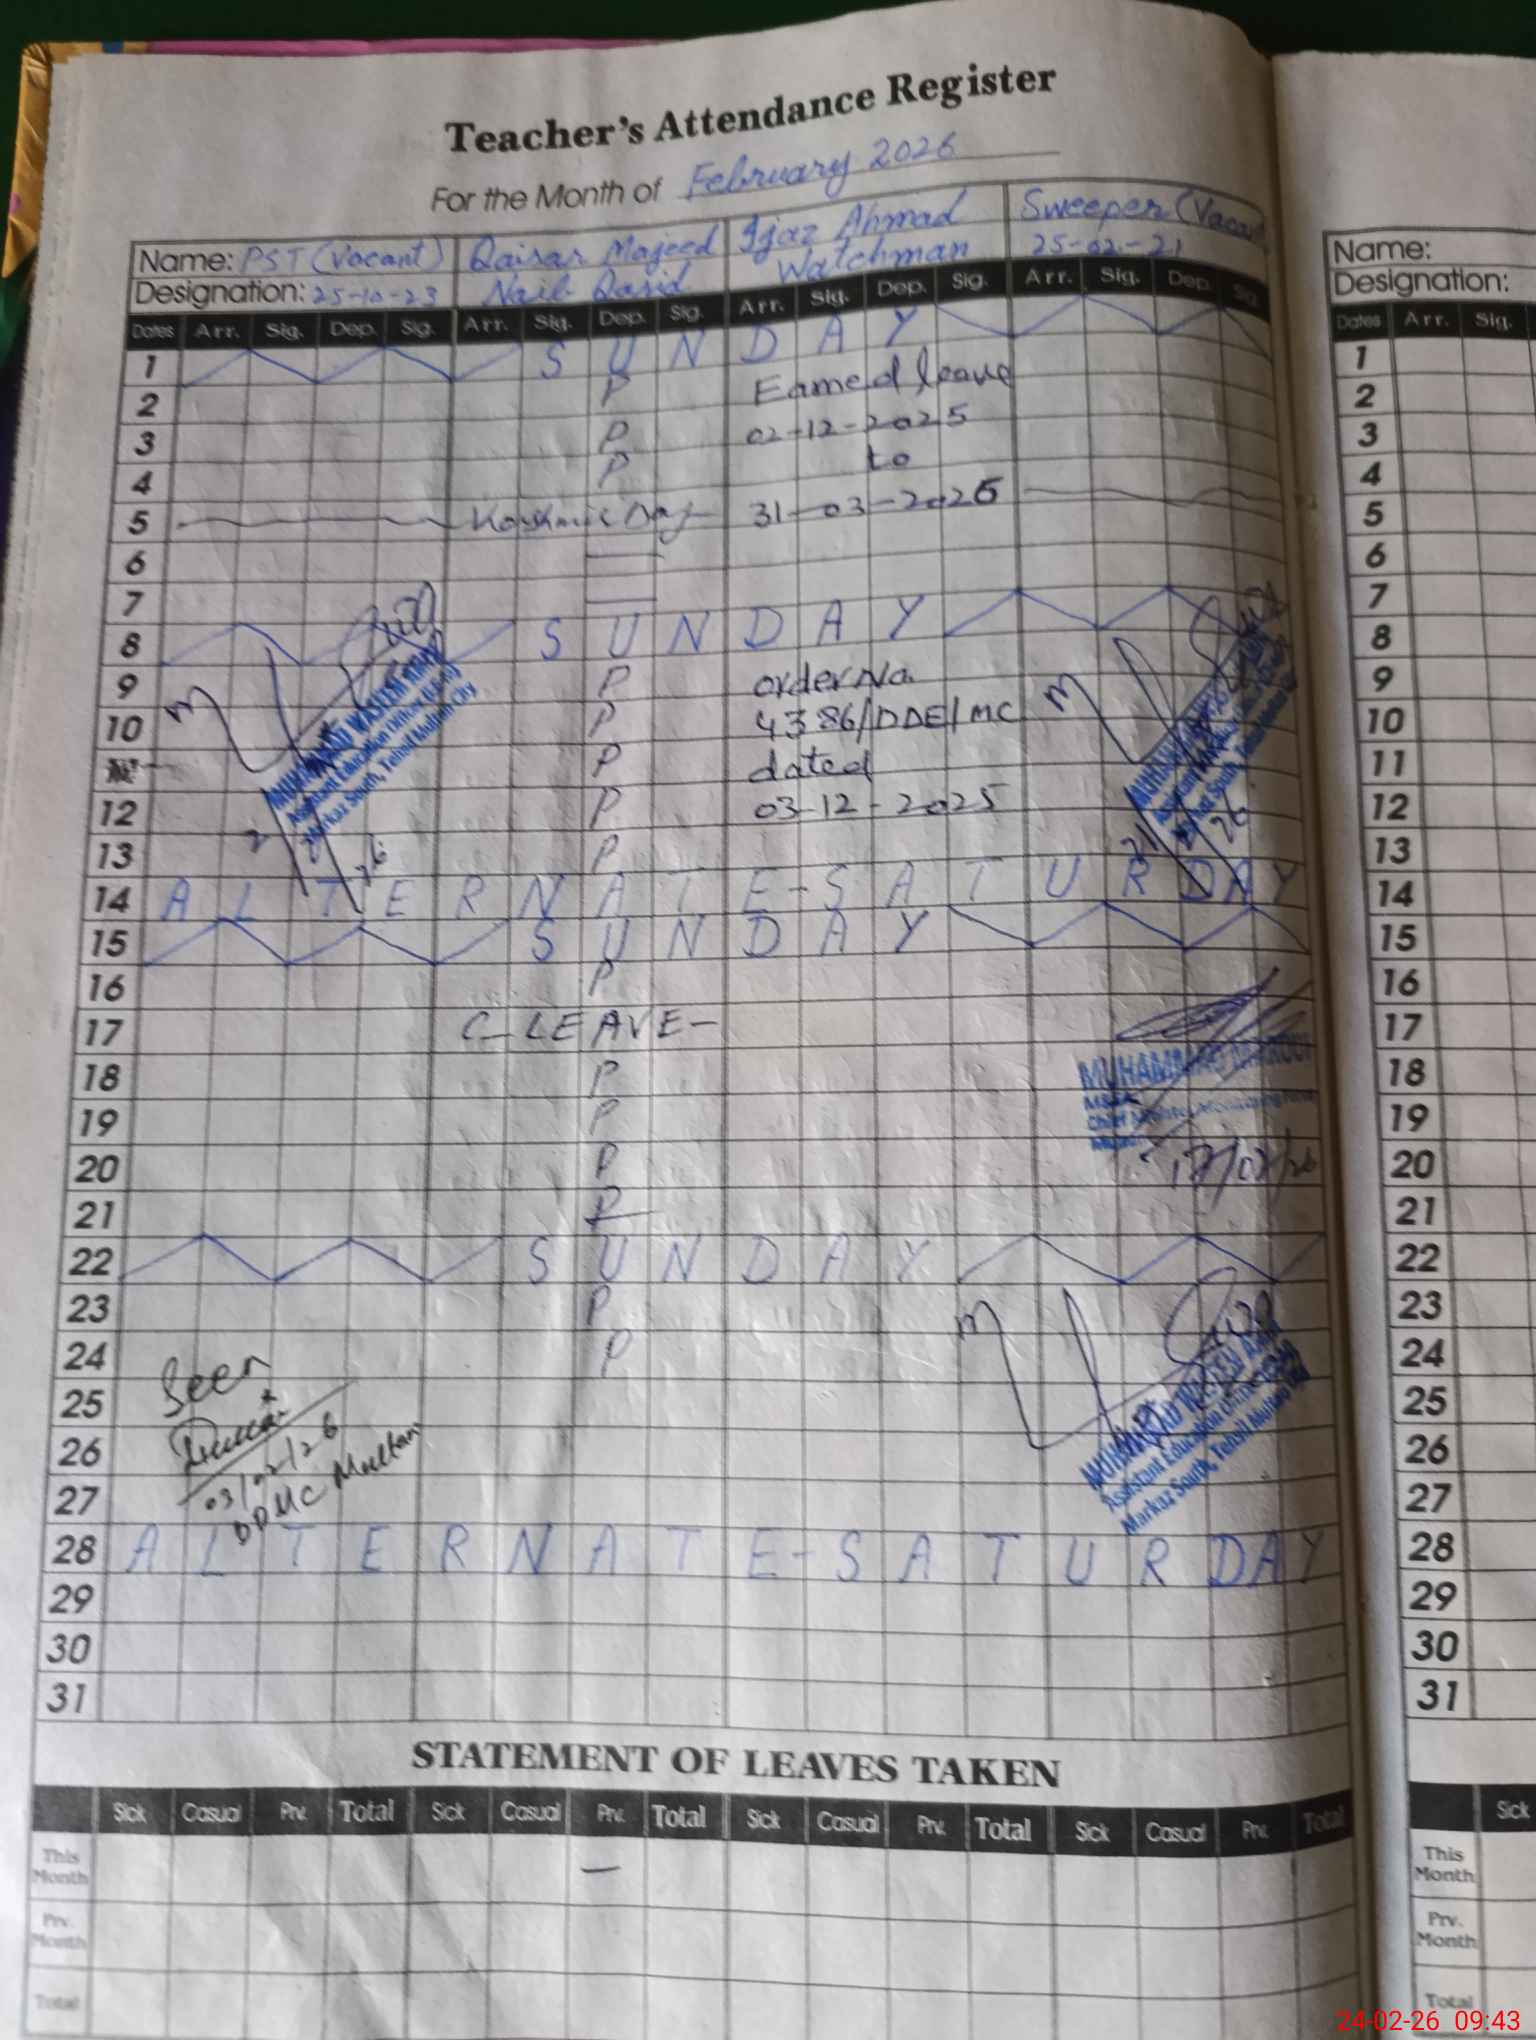 Teacher's Attendance Register
For the Month of February 2026
Name: PST (Vacant) Qaisar Majeed Ijaz Ahmad Sweeper (Vacant)
Designation: 25-10-23 Naib Qasid Watchman 25-02-21
Dates Arr. Sig. Dep. Sig. Arr. Sig. Dep. Sig. Arr. Sig. Dep. Sig. Arr. Sig. Dep. Sig.
1 S U N D A Y
2 P Earned leave
3 P 02-12-2025
4 P to
5 Kashmir Day 31-03-2026
6
7
8 S U N D A Y
9 P order No.
10 P 4386/DDE/MC
P dated
12 P 03-12-2025
13 P
14 A L T E R N A T E - S A T U R D A Y
15 S U N D A Y
16 P
17 C-LEAVE-
18 P
19 P
20 P
21 P
22 S U N D A Y
23 P
24 P
25
26
27
28 A L T E R N A T E - S A T U R D A Y
29
30
31
Assistant Education Officer
Markaz South, Tehsil Multan City
MUHAMMAD
17/02/26
Assistant Education Officer
Markaz South, Tehsil Multan
Seen
03/02/26
DDMC Multan
STATEMENT OF LEAVES TAKEN
Sick Casual Prv. Total Sick Casual Prv. Total Sick Casual Prv. Total Sick Casual Prv. Total
This Month —
Prv. Month
Total
Name:
Designation:
Dates Arr. Sig.
1
2
3
4
5
6
7
8
9
10
11
12
13
14
15
16
17
18
19
20
21
22
23
24
25
26
27
28
29
30
31
Sick
This Month
Prv. Month
Total
24-02-26 09:43